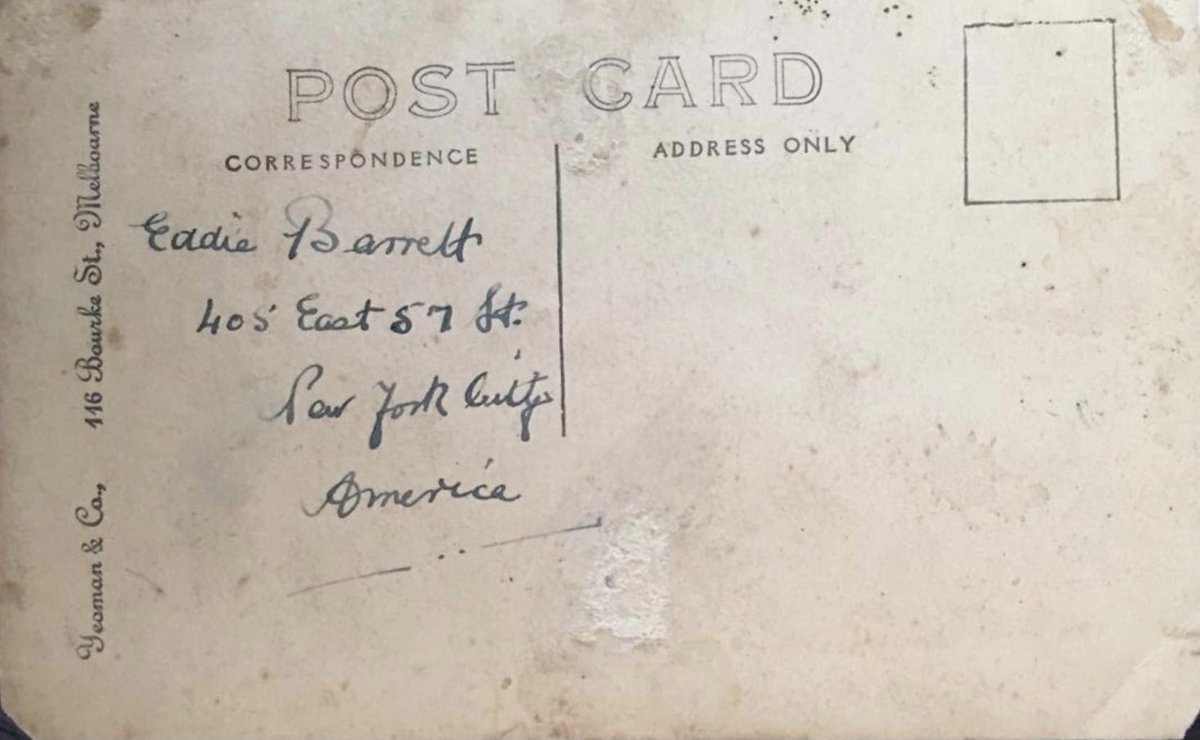 POST CARD
CORRESPONDENCE
ADDRESS ONLY
Eddie Barrett
405 East 57 St.
New York City
America
Yeoman & Co., 116 Bourke St., Melbourne